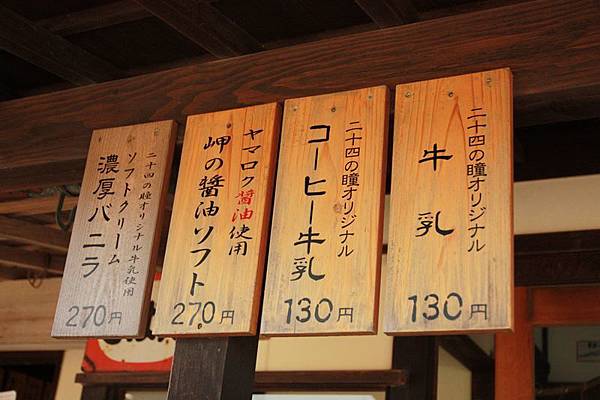 二十四の瞳オリジナル
牛乳
130円
二十四の瞳オリジナル
コーヒー牛乳
130円
ヤマロク醤油使用
岬の醤油ソフト
270円
二十四の瞳オリジナル牛乳使用
ソフトクリーム
濃厚バニラ
270円